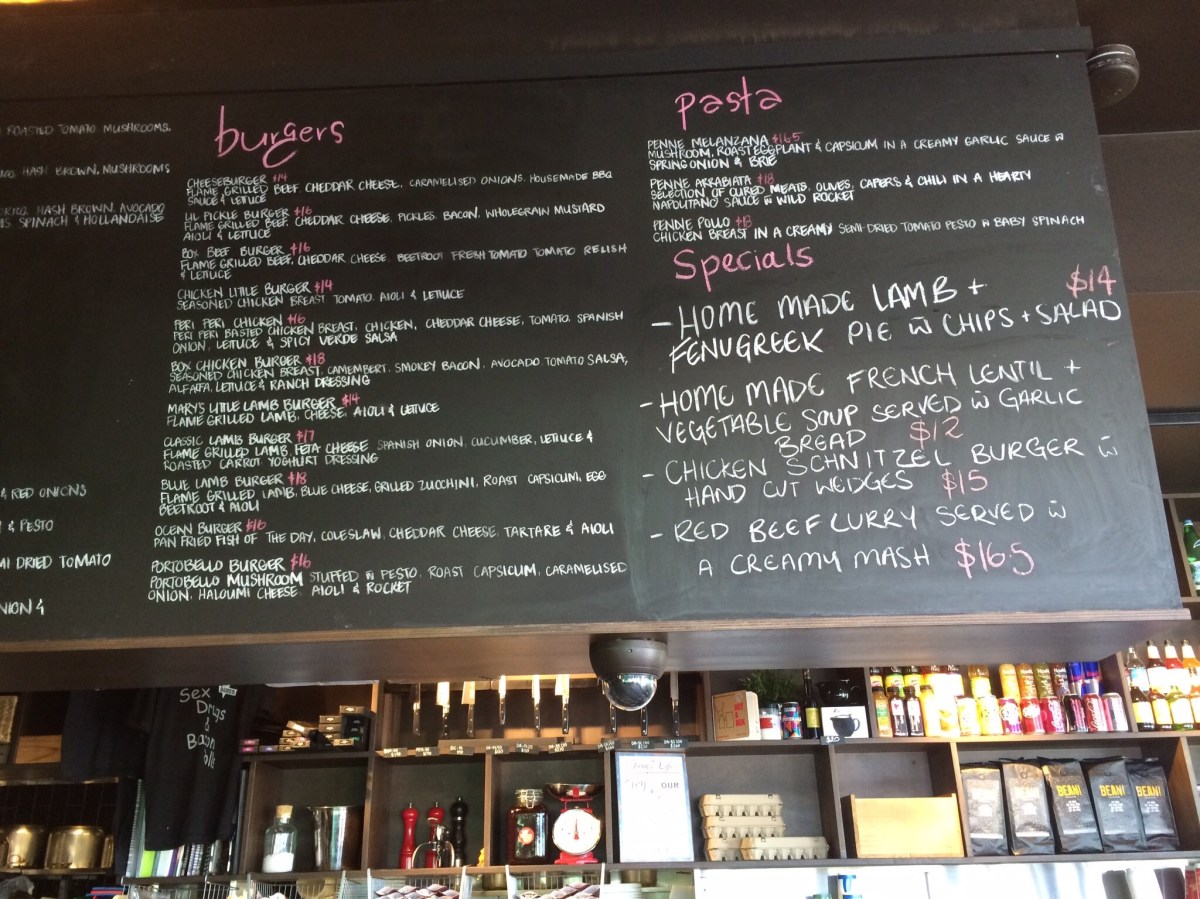 ROASTED TOMATO. MUSHROOMS.
HASH BROWN, MUSHROOMS
HASH BROWN, AVOCADO
SPINACH & HOLLANDAISE
& RED ONIONS
& PESTO
MI DRIED TOMATO
NION &
burgers
CHEESEBURGER $14
FLAME GRILLED BEEF. CHEDDAR CHEESE, CARAMELISED ONIONS. HOUSEMADE BBQ
SAUCE & LETTUCE
LIL PICKLE BURGER $16
FLAME GRILLED BEEF. CHEDDAR CHEESE. PICKLES. BACON. WHOLEGRAIN MUSTARD
AIOLI & LETTUCE
BOX BEEF BURGER $16
FLAME GRILLED BEEF, CHEDDAR CHEESE. BEETROOT FRESH TOMATO TOMATO RELISH
& LETTUCE
CHICKEN LITTLE BURGER $14
SEASONED CHICKEN BREAST TOMATO. AIOLI & LETTUCE
PERI PERI CHICKEN $16
PERI PERI BASTED CHICKEN BREAST, CHICKEN, CHEDDAR CHEESE, TOMATO. SPANISH
ONION. LETTUCE & SPICY VERDE SALSA
BOX CHICKEN BURGER $18
SEASONED CHICKEN BREAST. CAMEMBERT. SMOKEY BACON. AVOCADO. TOMATO SALSA,
ALFALFA, LETTUCE & RANCH DRESSING
MARY'S LITTLE LAMB BURGER $14
FLAME GRILLED LAMB, CHEESE. AIOLI & LETTUCE
CLASSIC LAMB BURGER $17
FLAME GRILLED LAMB, FETA CHEESE SPANISH ONION, CUCUMBER, LETTUCE &
ROASTED CARROT YOGHURT DRESSING
BLUE LAMB BURGER $18
FLAME GRILLED LAMB, BLUE CHEESE, GRILLED ZUCCHINI, ROAST CAPSICUM, EGG
BEETROOT & AIOLI
OCEAN BURGER $16
PAN FRIED FISH OF THE DAY, COLESLAW, CHEDDAR CHEESE. TARTARE & AIOLI
PORTOBELLO BURGER $16
PORTOBELLO MUSHROOM STUFFED W PESTO, ROAST CAPSICUM, CARAMELISED
ONION, HALOUMI CHEESE. AIOLI & ROCKET
pasta
PENNE MELANZANA $16.5
MUSHROOM, ROAST EGGPLANT & CAPSICUM IN A CREAMY GARLIC SAUCE W
SPRING ONION & BRIE
PENNE ARRABIATA $18
SELECTION OF CURED MEATS, OLIVES, CAPERS & CHILI IN A HEARTY
NAPOLITANO SAUCE W WILD ROCKET
PENNE POLLO $18
CHICKEN BREAST IN A CREAMY SEMI-DRIED TOMATO PESTO W BABY SPINACH
Specials
- HOME MADE LAMB + $14
FENUGREEK PIE W CHIPS + SALAD
- HOME MADE FRENCH LENTIL +
VEGETABLE SOUP SERVED W GARLIC
BREAD $12
- CHICKEN SCHNITZEL BURGER W
HAND CUT WEDGES $15
- RED BEEF CURRY SERVED W
A CREAMY MASH $16.5
Sex
Drugs
&
Bacon
BEAN!
BEAN!
BEAN!